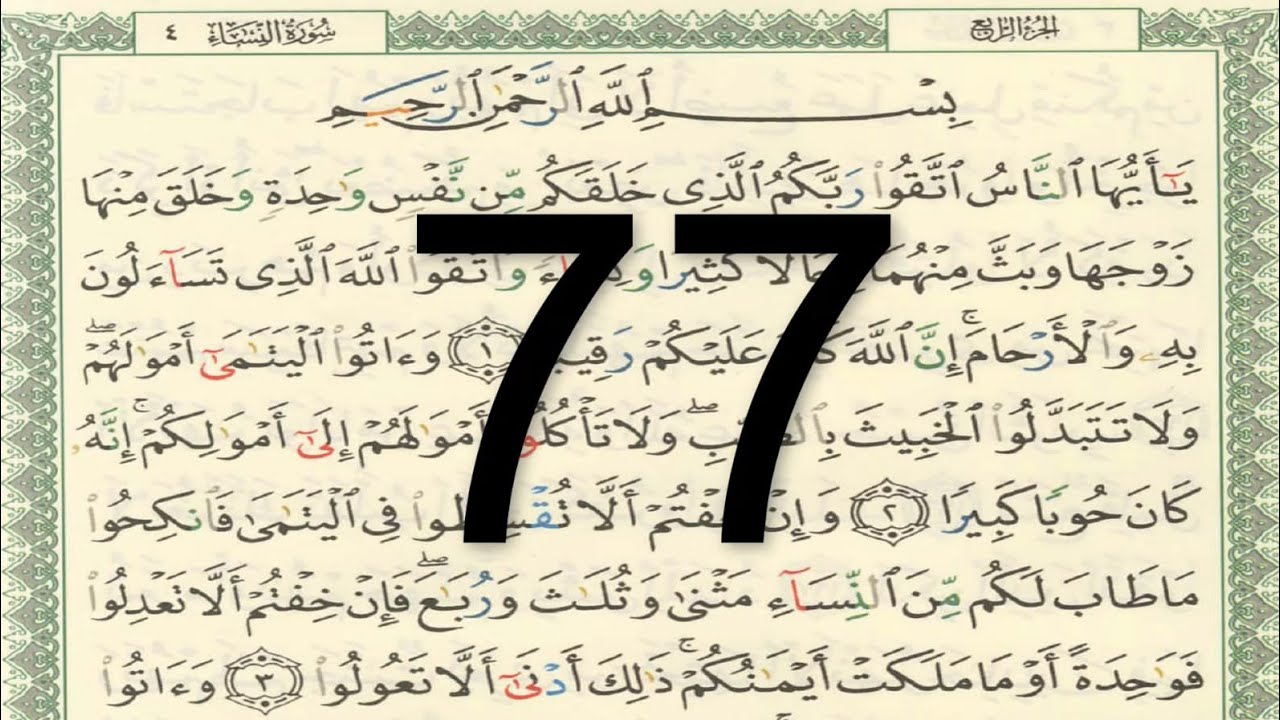 الجُزءُ الرَّابِعُ
سُورَةُ النِّسَاءِ ٤
بِسْمِ ٱللَّهِ ٱلرَّحْمَٰنِ ٱلرَّحِيمِ
يَٰٓأَيُّهَا ٱلنَّاسُ ٱتَّقُوا۟ رَبَّكُمُ ٱلَّذِى خَلَقَكُم مِّن نَّفْسٍ وَٰحِدَةٍ وَخَلَقَ مِنْهَا
زَوْجَهَا وَبَثَّ مِنْهُمَا رِجَالًا كَثِيرًا وَنِسَآءً وَٱتَّقُوا۟ ٱللَّهَ ٱلَّذِى تَسَآءَلُونَ
بِهِۦ وَٱلْأَرْحَامَ ۚ إِنَّ ٱللَّهَ كَانَ عَلَيْكُمْ رَقِيبًا ١ وَءَاتُوا۟ ٱلْيَتَٰمَىٰٓ أَمْوَٰلَهُمْ ۖ
وَلَا تَتَبَدَّلُوا۟ ٱلْخَبِيثَ بِٱلطَّيِّبِ ۖ وَلَا تَأْكُلُوٓا۟ أَمْوَٰلَهُمْ إِلَىٰٓ أَمْوَٰلِكُمْ ۚ إِنَّهُۥ
كَانَ حُوبًا كَبِيرًا ٢ وَإِنْ خِفْتُمْ أَلَّا تُقْسِطُوا۟ فِى ٱلْيَتَٰمَىٰ فَٱنكِحُوا۟
مَا طَابَ لَكُم مِّنَ ٱلنِّسَآءِ مَثْنَىٰ وَثُلَٰثَ وَرُبَٰعَ ۖ فَإِنْ خِفْتُمْ أَلَّا تَعْدِلُوا۟
فَوَٰحِدَةً أَوْ مَا مَلَكَتْ أَيْمَٰنُكُمْ ۚ ذَٰلِكَ أَدْنَىٰٓ أَلَّا تَعُولُوا۟ ٣ وَءَاتُوا۟
77